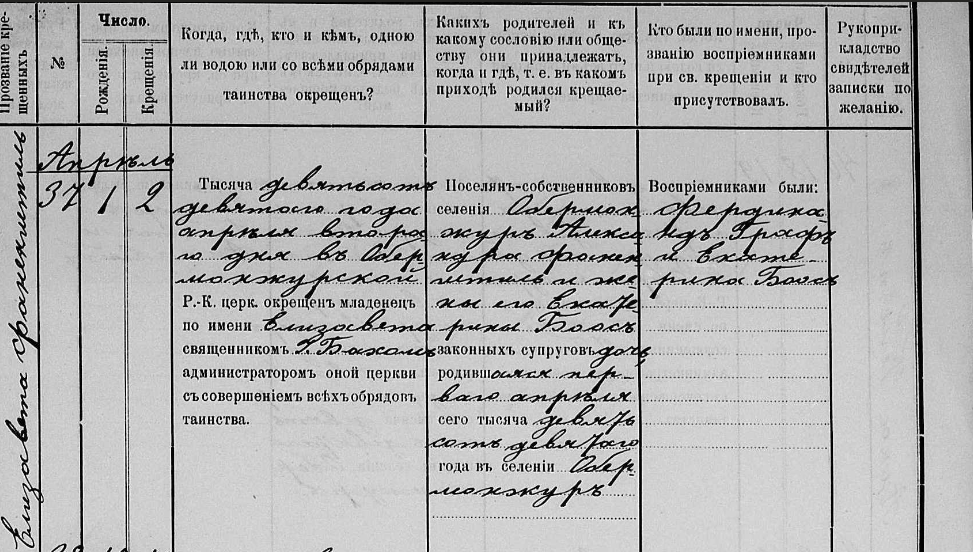 Прозванiе кре-
щенныхъ
№
Число.
Рожденiя.
Крещенiя.
Когда, гдѣ, кто и кѣмъ, одною
ли водою или со всѣми обрядами
таинства окрещенъ?
Какихъ родителей и къ
какому сословiю или обще-
ству они принадлежатъ,
когда и гдѣ, т. е. въ какомъ
приходѣ родился крещае-
мый?
Кто были по имени, про-
званiю воспрiемниками
при св. крещенiи и кто
присутствовалъ.
Рукопри-
кладство
свидѣтелей
записки по
желанiю.
Елизавета
Апрѣль
37 1 2
Тысяча девятьсотъ
девятого года
апрѣля второ-
го дня въ Обер-
монжурской
Р.-К. церк. окрещенъ младенецъ
по имени Елизавета
священникомъ Бахомъ
администраторомъ оной церкви
съ совершенiемъ всѣхъ обрядовъ
таинства.
Поселянъ-собственниковъ
селенiя Обермон-
журъ Алекса-
ндра
и же-
ны его Екате-
рины Боосъ
законныхъ супруговъ дочь,
родившаяся пер-
ваго апрѣля
сего тысяча девять
сотъ девятаго
года въ селенiи Обер-
монжуръ
Воспрiемниками были:
Фердина-
ндъ Графъ
и Екате-
рина Боосъ